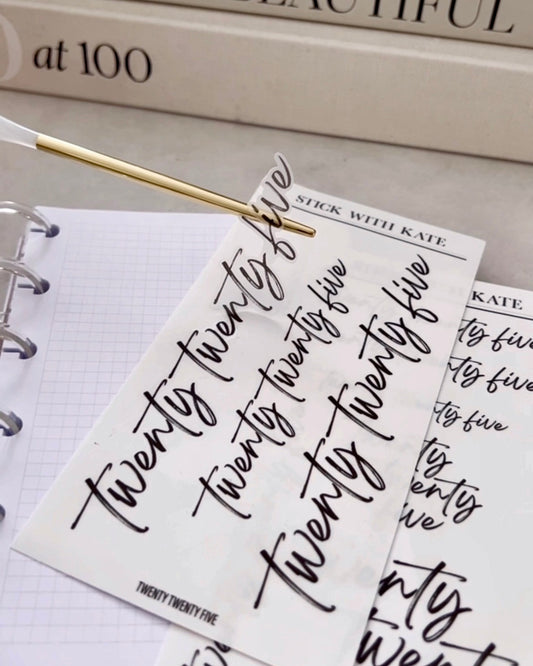 BEAUTIFUL
at 100
STICK WITH KATE
twenty twenty five
twenty twenty five
twenty twenty five
TWENTY TWENTY FIVE
KATE
ty five
ty five
ty five
ty
enty
ve
nty
twenty